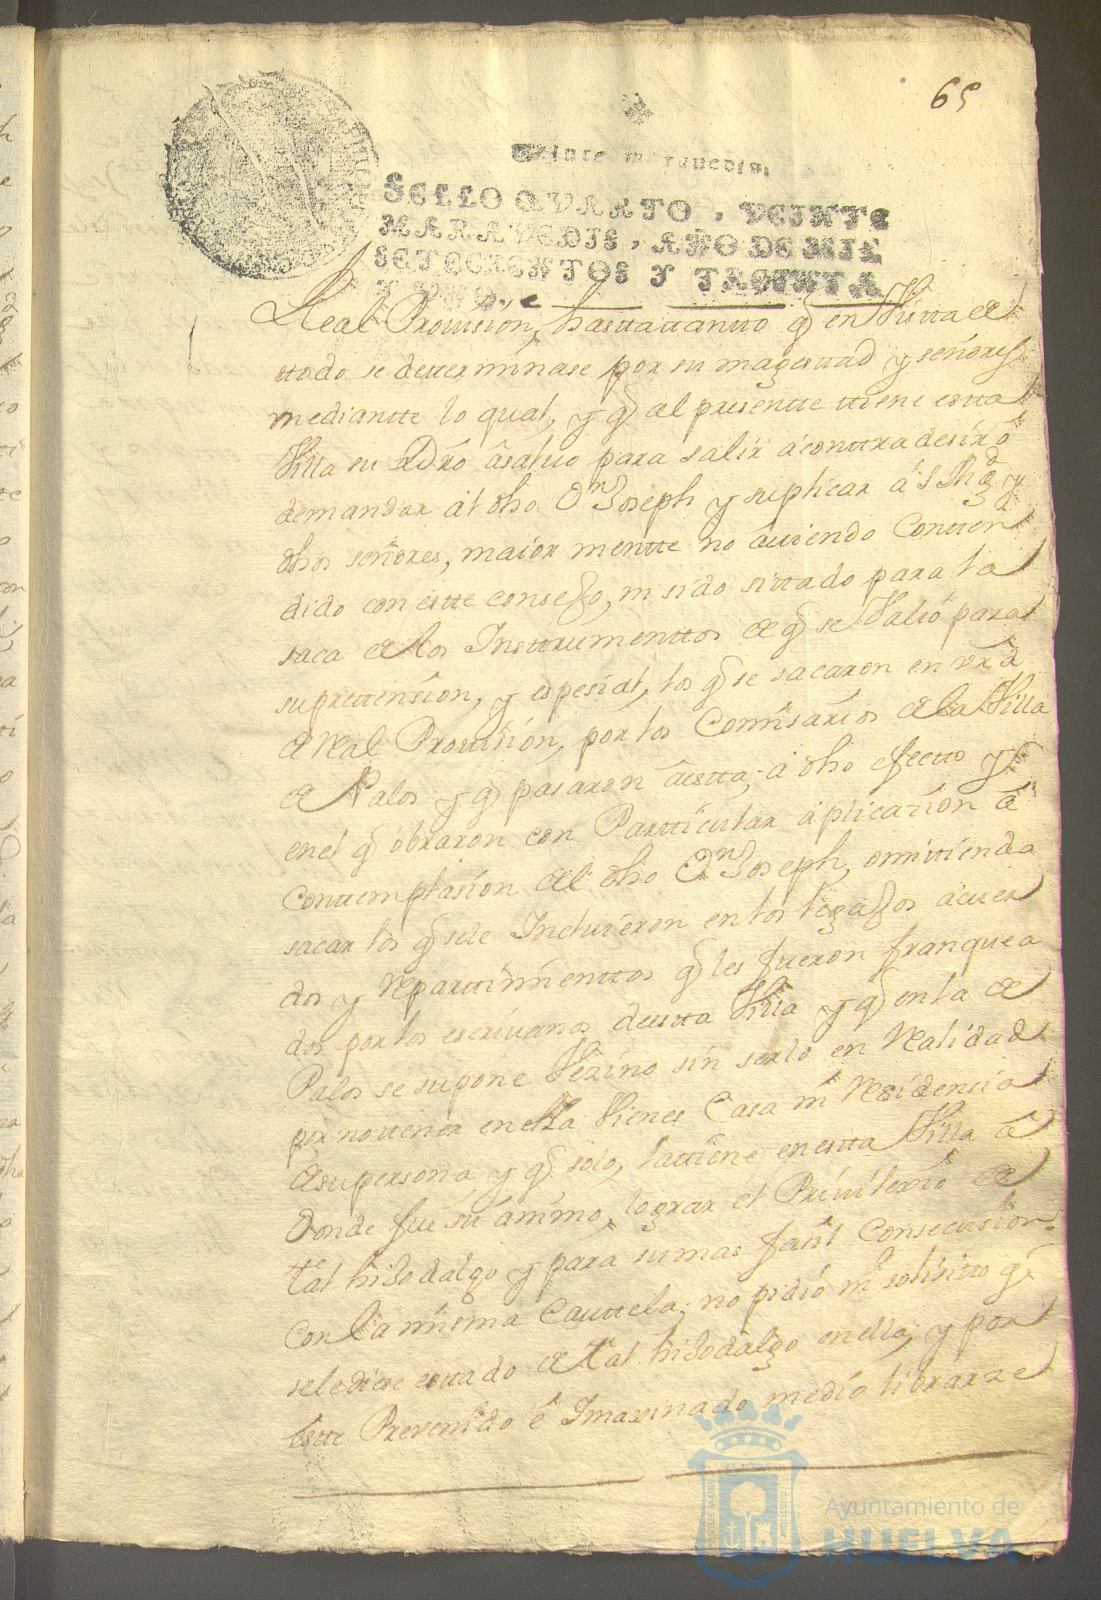 65
Veinte maravedis.
SELLO QVARTO, VEINTE
MARAVEDIS, AÑO DE MIL
SETECIENTOS Y TREINTA
Y VNO.
Real Provision, hasttattantto q̃ en Vistta de
ttodo se detterminase por su magesttad y señores
mediantte lo qual, y q̃ al presentte ttiene estta
Villa su dro âsalvo para salir âconttradesir ô
demandar âl dho Dn Joseph y suplicar â S Mgd y
dhos señores, maior mentte no âviendo Contten
dido con estte consejo, ni sido sittado para la
saca de los Insttrumenttos de q̃ se Valio para
su prettension, y espesial, los q̃ se sacaron en vrd
de Real Provision, por los Comisarios de la Villa
de Palos y q̃ pasaron âestta, â dho efectto y
en el q̃ obraron con Partticular âplicazion â
Conttemplasion del dho Dn Joseph, omittiendo
sacar los q̃ se le Incluieron en los legajos âcuer
dos y Reparttimienttos q̃ les fueron franquea
dos por los escrivanos de estta Villa y q̃ en la de
Palos se supone Vezino sin serlo en Realidad
por no ttener en ella Vienes Casa ni Residensia
de su persona y q̃ solo, la ttiene en estta Villa â
Donde fue su ânimo, lograr el Previlexio de
tal hijodalgo y para su mas facil Consecusion
Con la misma Cauttela, no pidio ni solisitto q̃
se le diese esttado de tal hijodalgo en ella, y por
estte Prevenido ê Imaxinado medio librarze
Ayuntamiento de
HUELVA